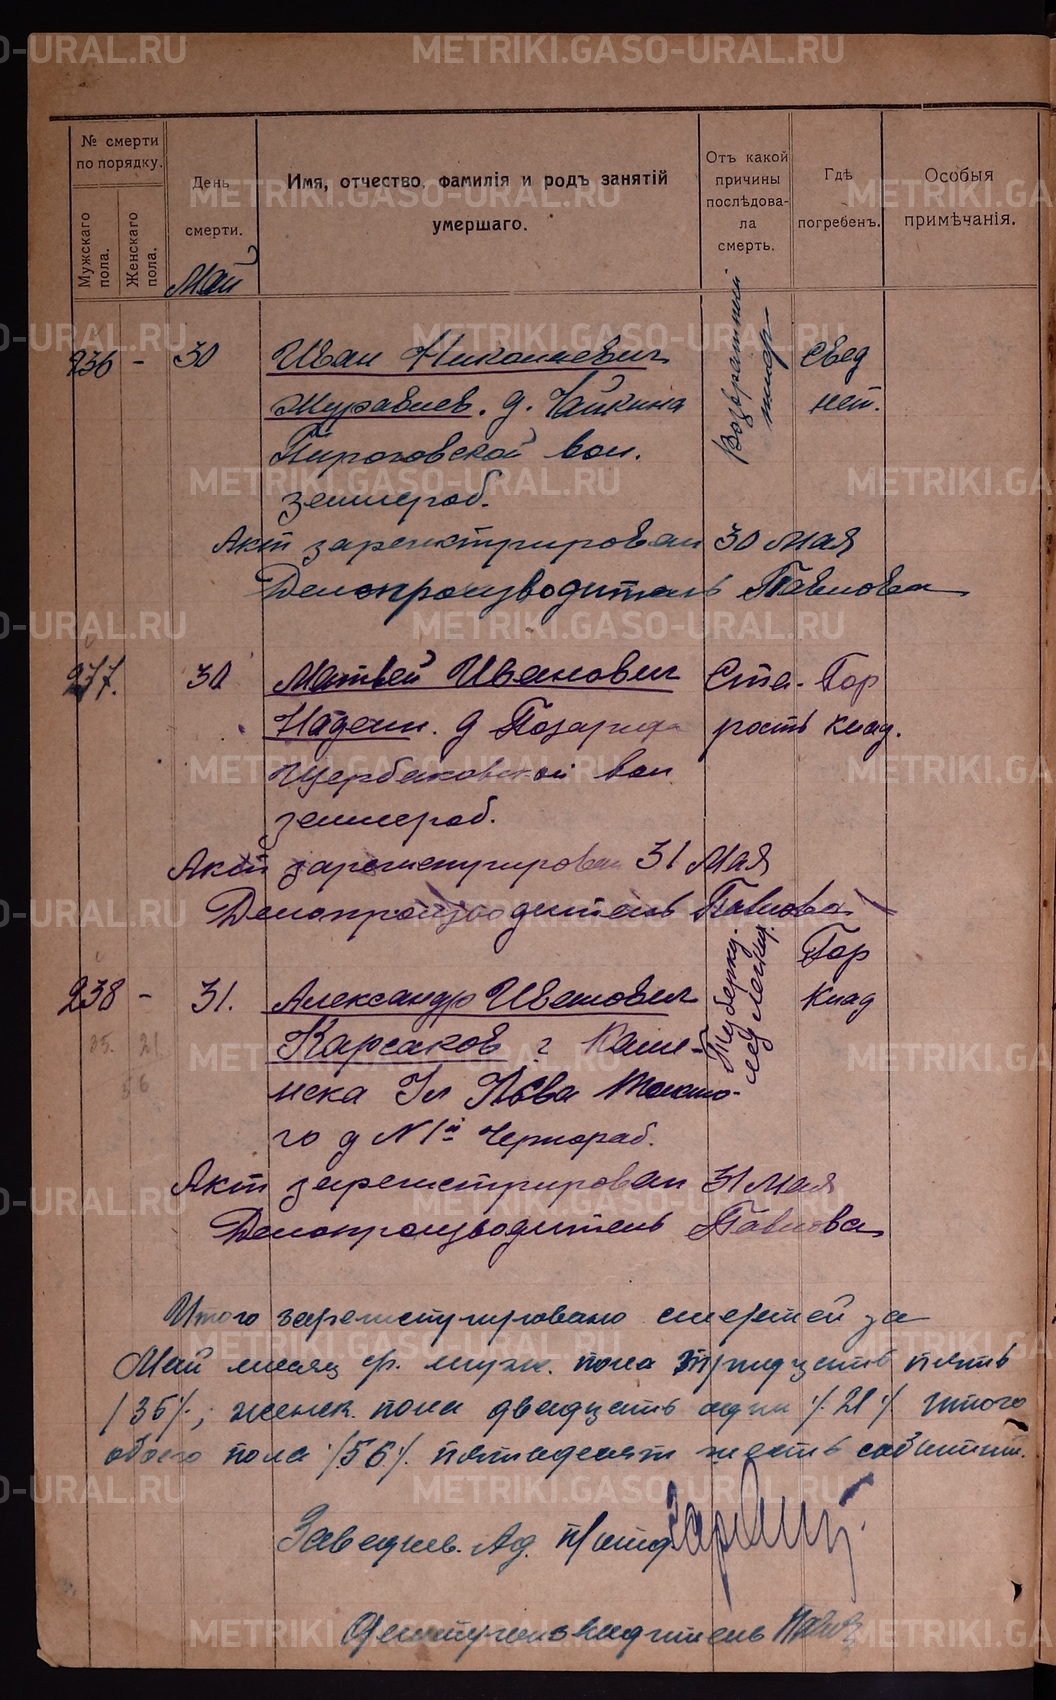 METRIKI.GASO-URAL.RU
№ смерти по порядку.
Мужскаго пола.
Женскаго пола.
День смерти.
Имя, отчество, фамилія и родъ занятій умершаго.
Отъ какой причины послѣдовала смерть.
Гдѣ погребенъ.
Особыя примѣчанія.
Май
236 - 30 Иван Николаевич Возвратный тиф Свед
Журавлев. д. Чайкина нет.
Пироговской вол.
землероб.
Акт зарегистрирован 30 мая
Делопроизводитель Павлова
237. 30 Матвей Иванович Ста- Гор
д Позариха рость клад.
Щербаковской вол
землероб.
Акт зарегистрирован 31 Мая
Делопроизводитель Павлова
238 - 31. Александр Иванович Туберку. лег Гор
Карсаков г Каме- Клад
35. 21
56
нска Ул Льва Толсто-
го д N 1й Чернораб.
Акт зарегистрирован 31 мая
Делопроизводитель Павлова
Итого зарегистрировано смертей за
Май месяц с.г. мужк. пола тридцать пять
/35/.; женск. пола двадцать один /.21./ Итого
обоего пола /56/. пятьдесят шесть событий.
Заведыв. Ад. п/отд
Делопроизводитель Павлов